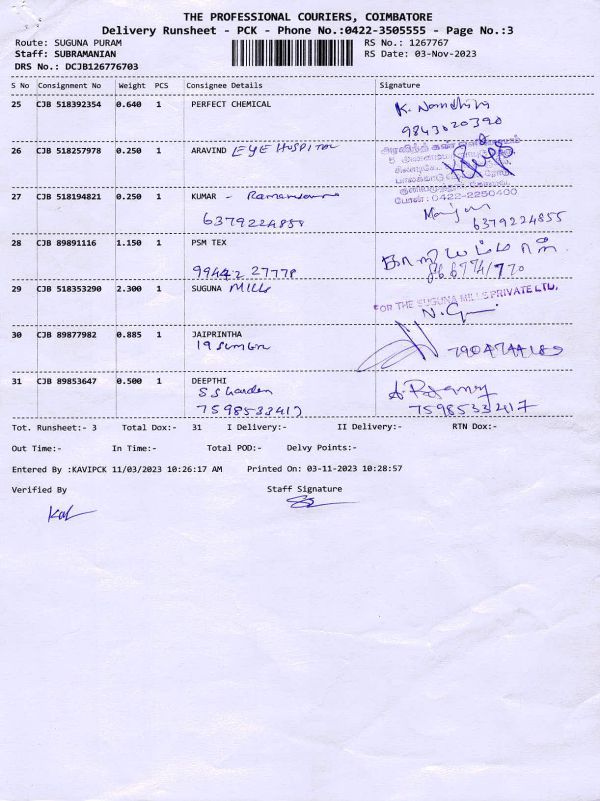 THE PROFESSIONAL COURIERS, COIMBATORE
Delivery Runsheet - PCK - Phone No.:0422-3505555 - Page No.:3
Route: SUGUNA PURAM RS No.: 1267767
Staff: SUBRAMANIAN RS Date: 03-Nov-2023
DRS No.: DCJB126776703
S No Consignment No Weight PCS Consignee Details Signature
25 CJB 518392354 0.640 1 PERFECT CHEMICAL
9843020390
26 CJB 518257978 0.250 1 ARAVIND EYE HOSPITAL
போன் : 0422-2250400
27 CJB 518194821 0.250 1 KUMAR -
6379224855 6379224855
28 CJB 89891116 1.150 1 PSM TEX
99442 27778
29 CJB 518353290 2.300 1 SUGUNA MILLS
FOR THE SUGUNA MILLS PRIVATE LTD.
30 CJB 89877982 0.885 1 JAIPRINTHA
31 CJB 89853647 0.500 1 DEEPTHI
S S Garden
7598533417 7598533417
Tot. Runsheet:- 3 Total Dox:- 31 I Delivery:- II Delivery:- RTN Dox:-
Out Time:- In Time:- Total POD:- Delvy Points:-
Entered By :KAVIPCK 11/03/2023 10:26:17 AM Printed On: 03-11-2023 10:28:57
Verified By Staff Signature